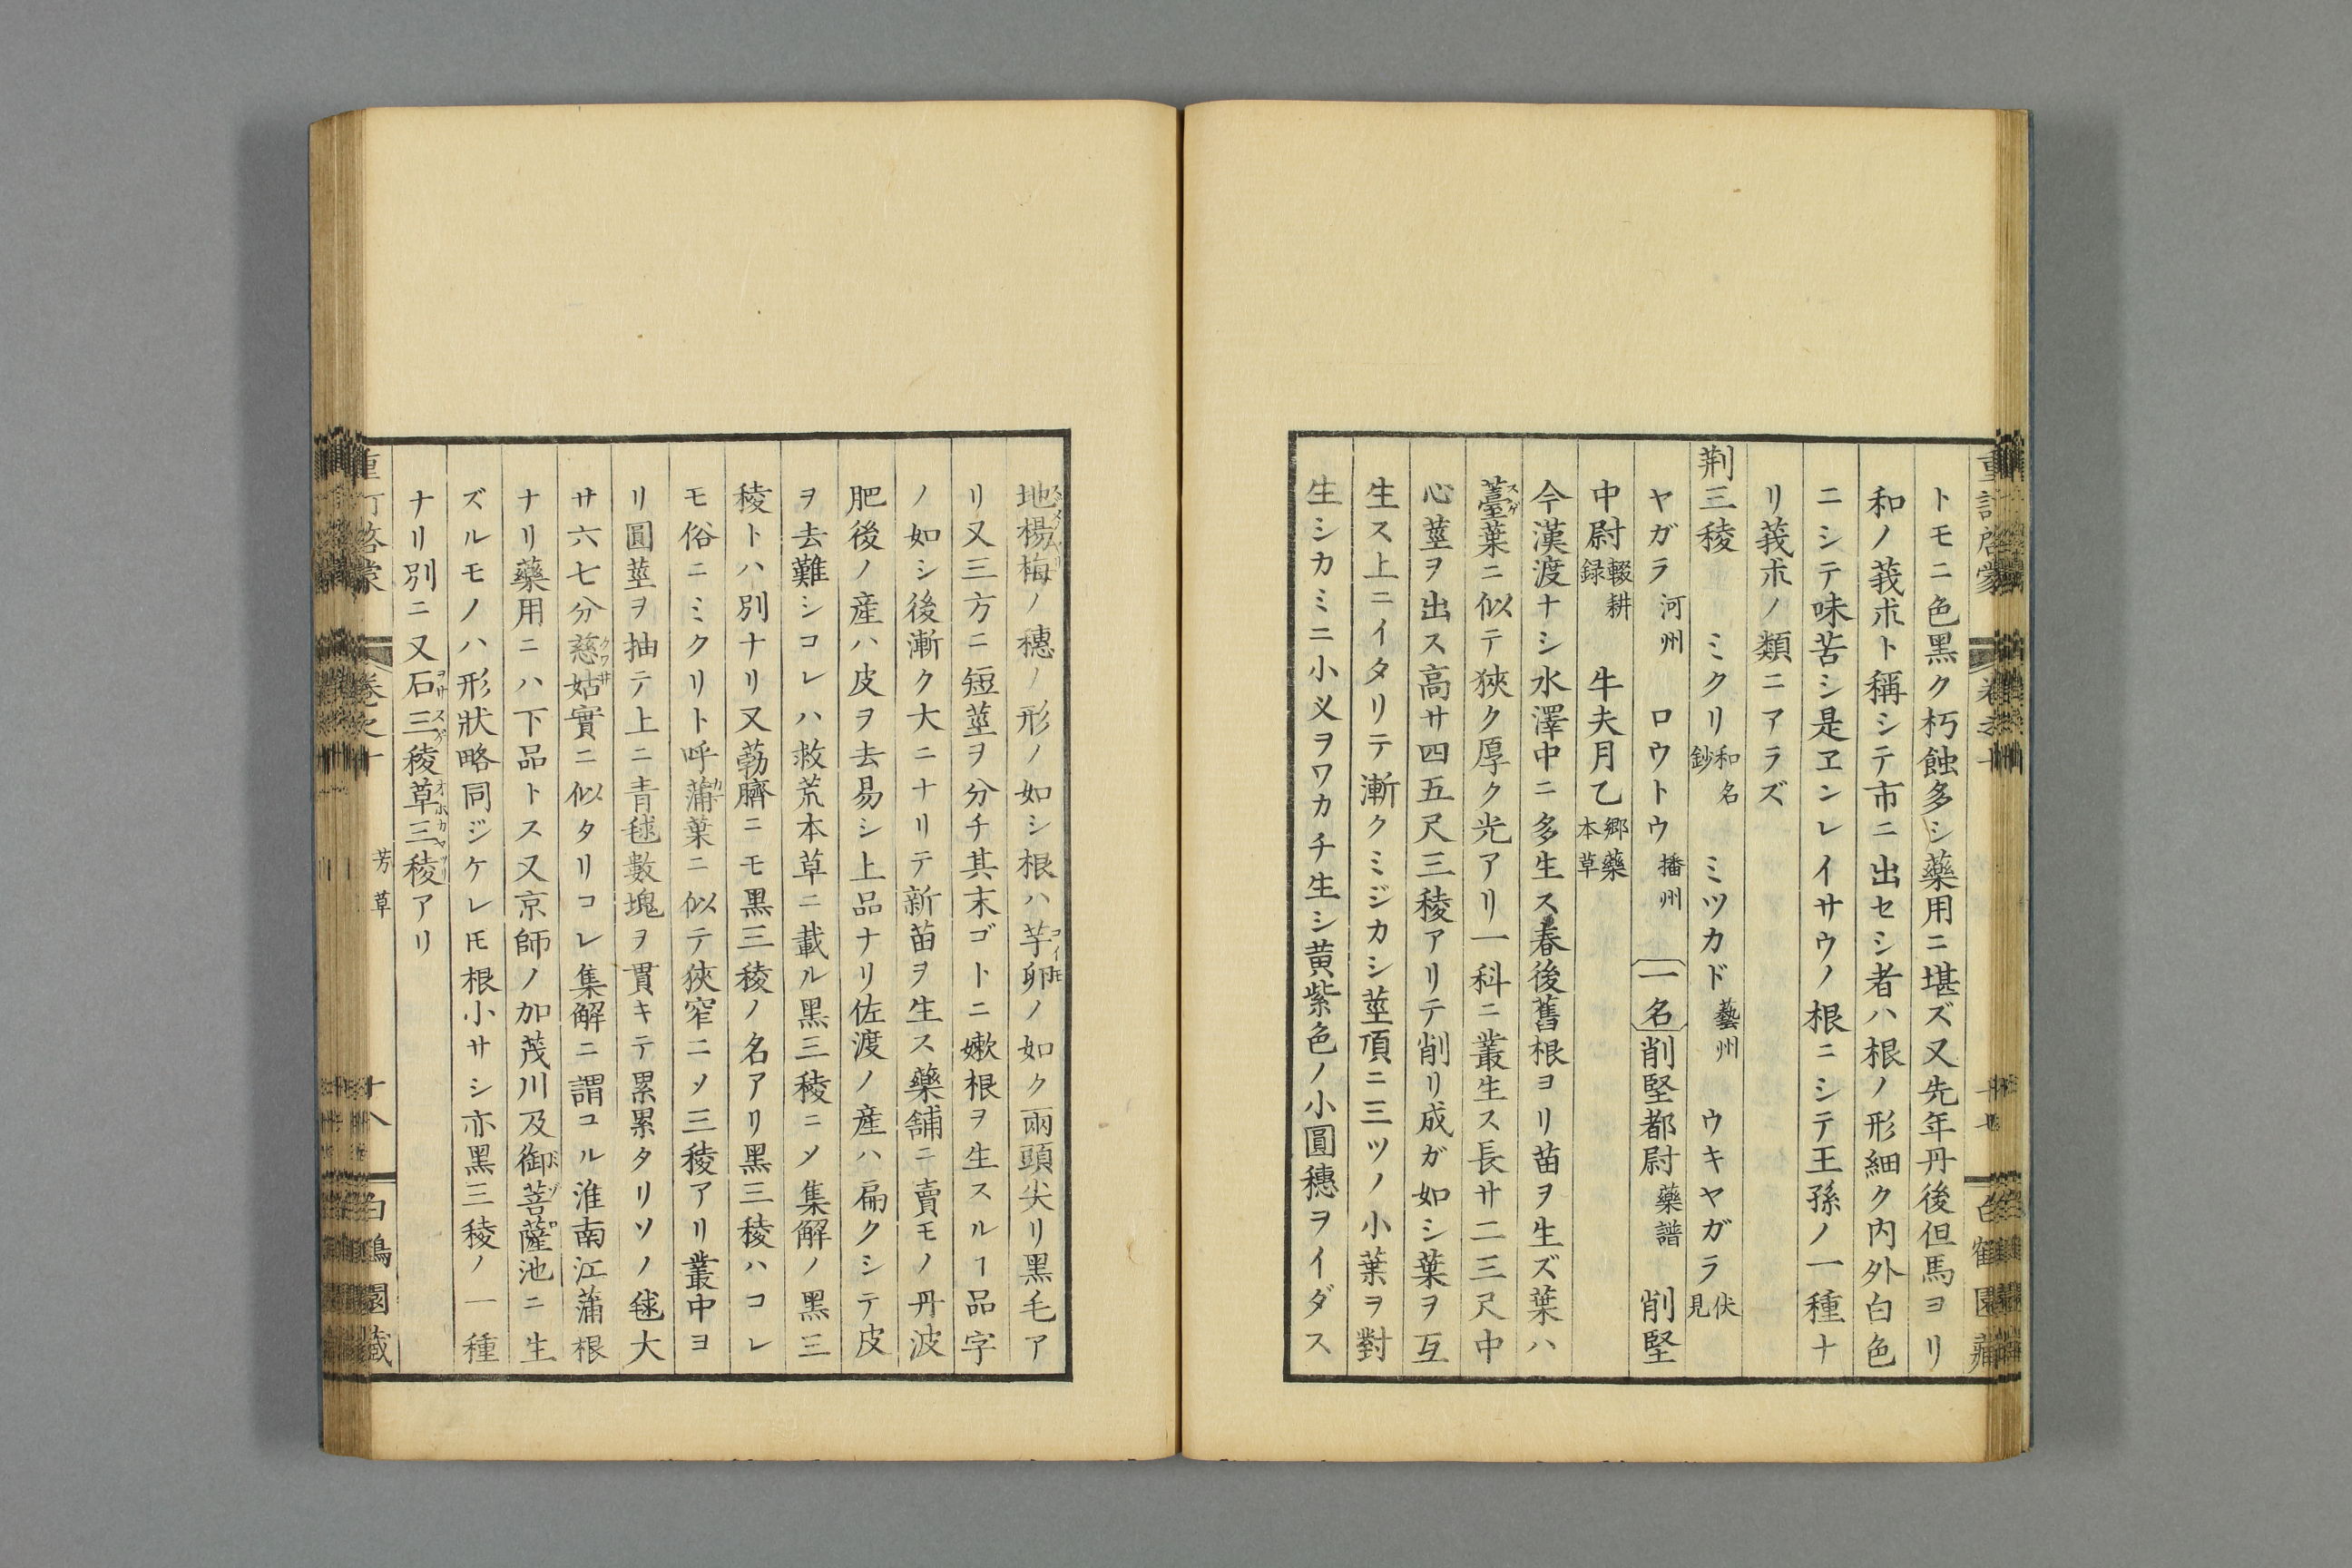 トモニ色黒ク朽蝕多シ藥用ニ堪ズ又先年丹後但馬ヨリ
和ノ莪朮ト稱シテ市ニ出セシ者ハ根ノ形細ク内外白色
ニシテ味苦シ是ヱンレイサウノ根ニシテ王孫ノ一種ナ
リ莪朮ノ類ニアラズ
荆三稜 ミクリ 和名鈔 ミツカド 藝州 ウキヤガラ 伏見
ヤガラ 河州 ロウトウ 播州 一名 削堅都尉 藥譜 削堅
中尉 輟耕録 牛夫月乙 郷藥本草
今漢渡ナシ水澤中ニ多生ス春後舊根ヨリ苗ヲ生ズ葉ハ
薹葉ニ似テ狹ク厚ク光アリ一科ニ叢生ス長サ二三尺中
心莖ヲ出ス高サ四五尺三稜アリテ削リ成ガ如シ葉ヲ互
生ス上ニイタリテ漸クミジカシ莖頂ニ三ツノ小葉ヲ對
生シカミニ小义ヲワカチ生シ黄紫色ノ小圓穗ヲイダス
地楊梅ノ穗ノ形ノ如シ根ハ芋卵ノ如ク兩頭尖リ黒毛ア
リ又三方ニ短莖ヲ分チ其末ゴトニ嫩根ヲ生スルヿ品字
ノ如シ後漸ク大ニナリテ新苗ヲ生ス藥舗ニ賣モノ丹波
肥後ノ産ハ皮ヲ去易シ上品ナリ佐渡ノ産ハ扁クシテ皮
ヲ去難シコレハ救荒本草ニ載ル黒三稜ニメ集解ノ黒三
稜トハ別ナリ又葧臍ニモ黒三稜ノ名アリ黒三稜ハコレ
モ俗ニミクリト呼蒲葉ニ似テ狹窄ニメ三稜アリ叢中ヨ
リ圓莖ヲ抽テ上ニ青毬數塊ヲ貫キテ累累タリソノ毬大
サ六七分慈姑實ニ似タリコレ集解ニ謂コル淮南江蒲根
ナリ藥用ニハ下品トス又京師ノ加茂川及御菩薩池ニ生
ズルモノハ形狀略同ジケレ𪜈根小サシ亦黒三稜ノ一種
ナリ別ニ又石三稜草三稜アリ
芳草